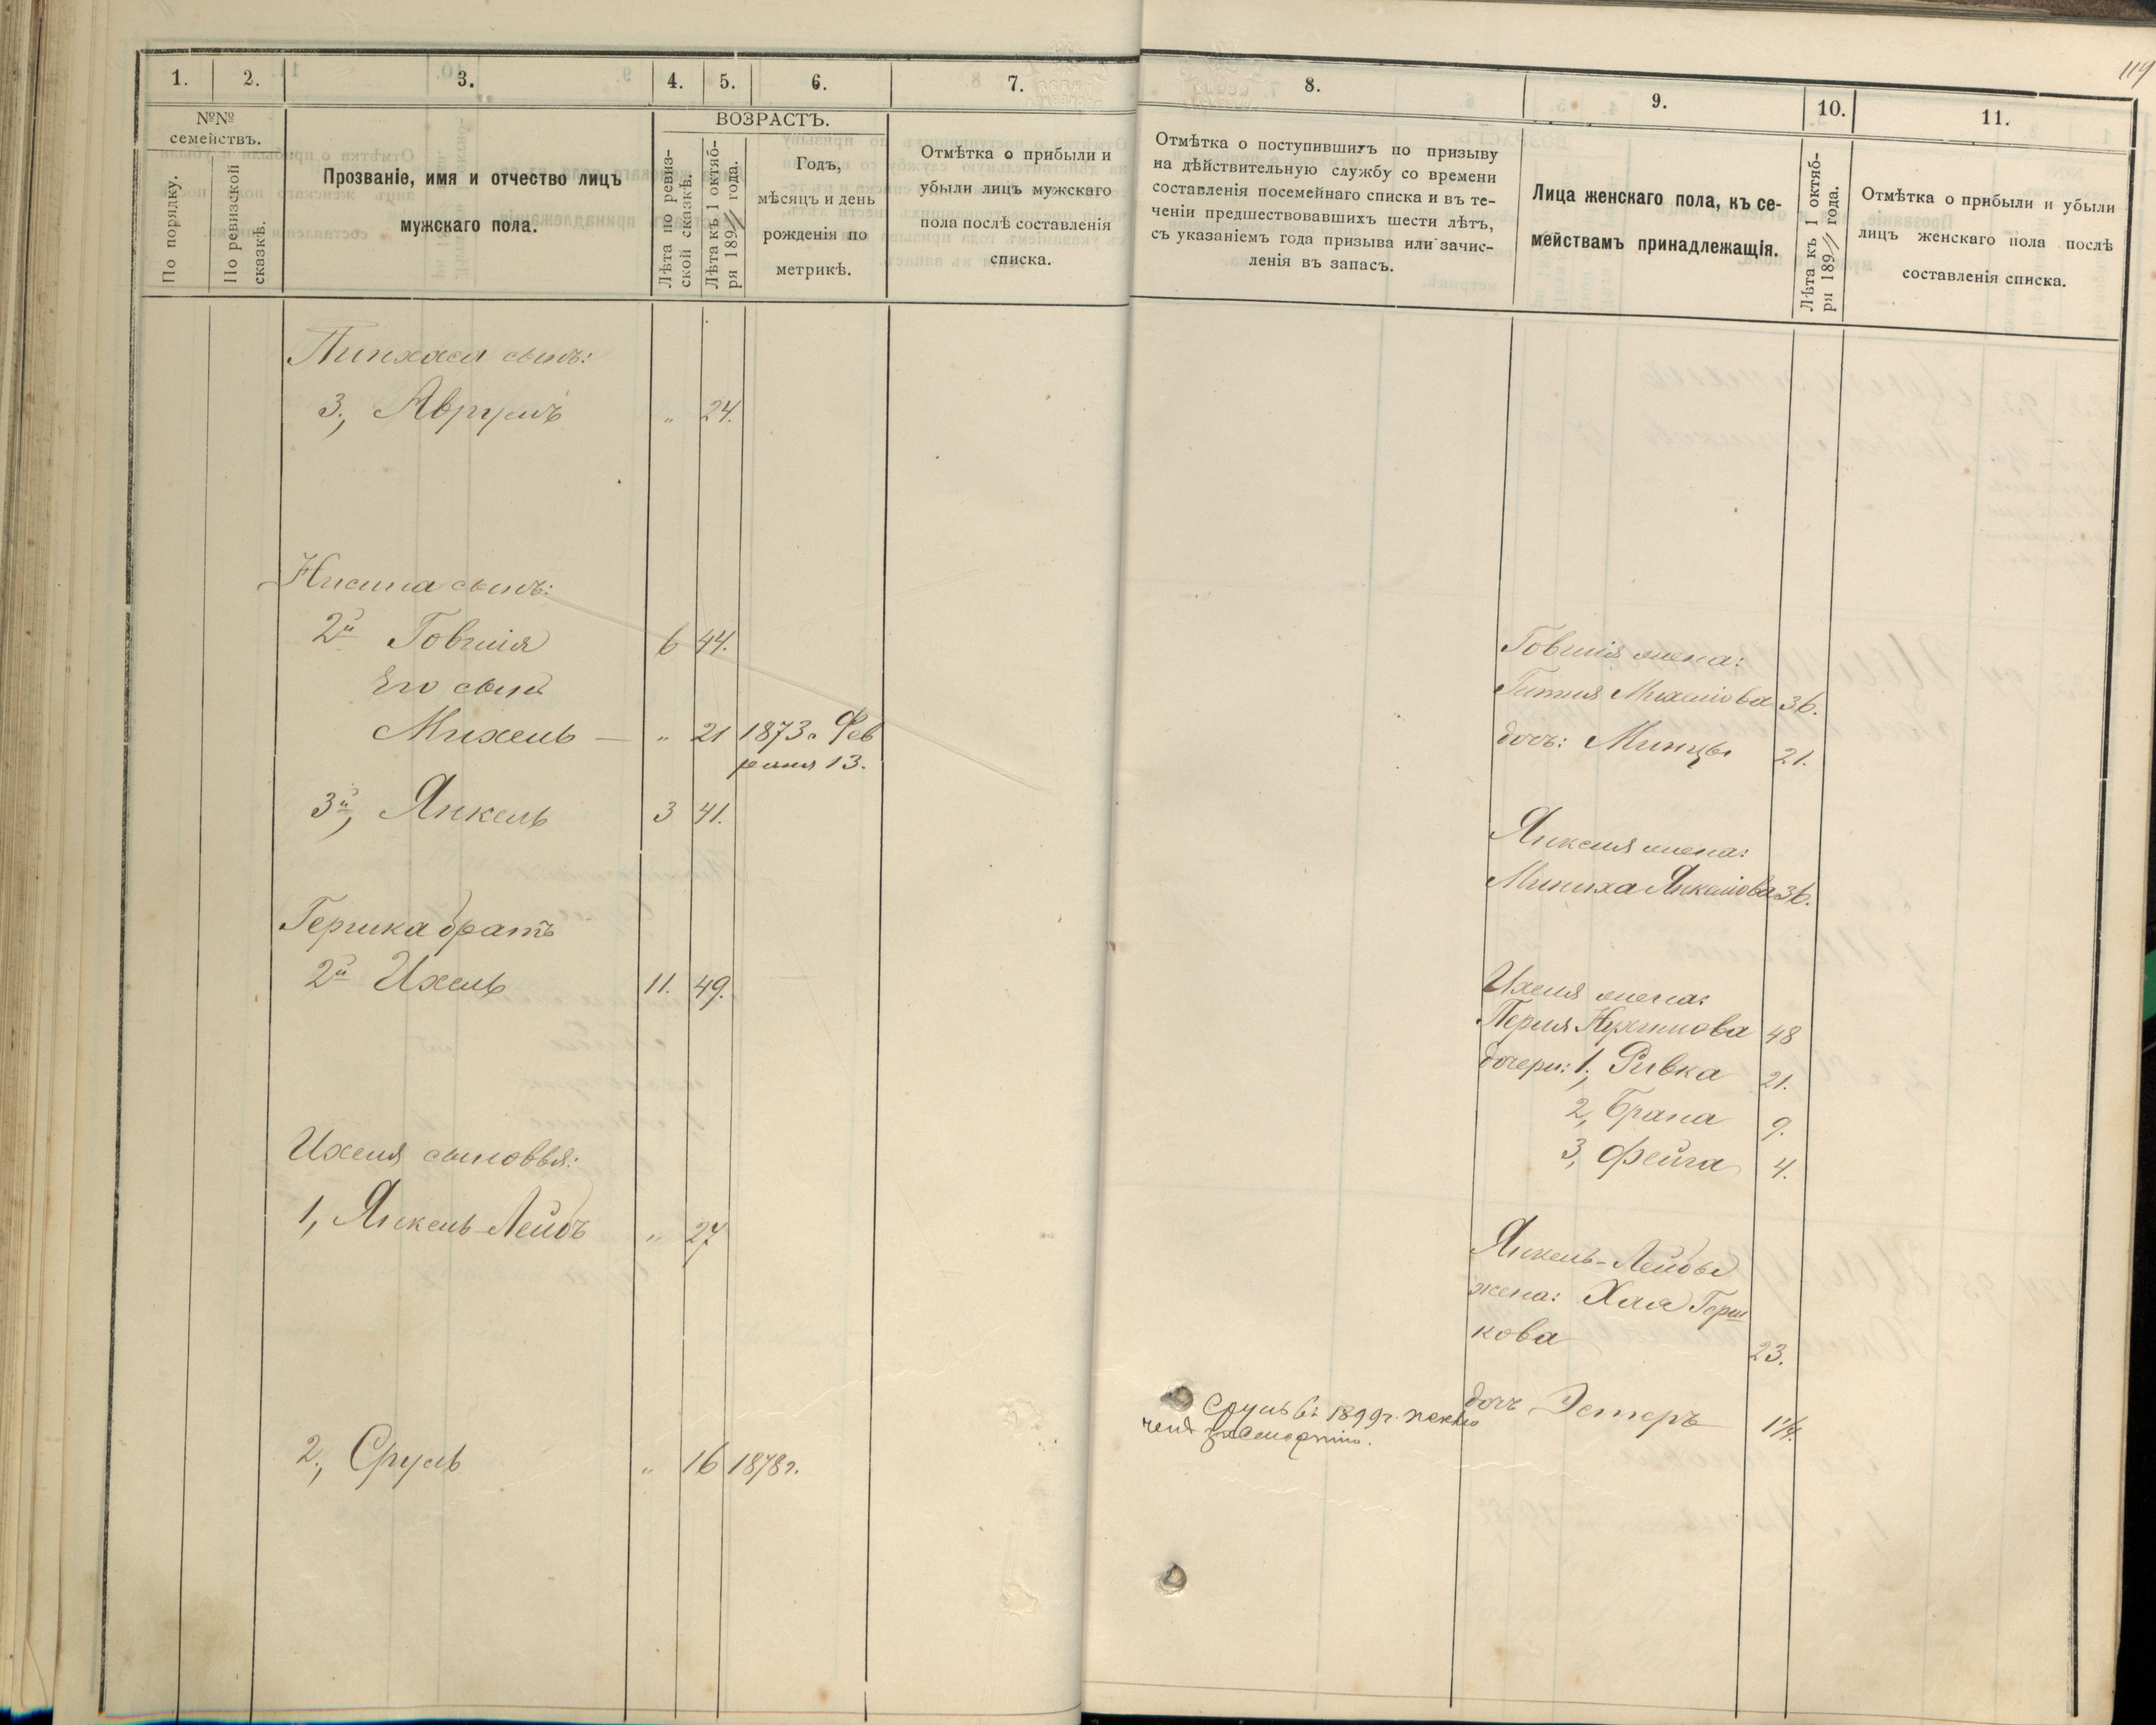 119
1. 2. 3. 4. 5. 6. 7.
№№ семействъ.
По порядку.
По ревизской сказкѣ.
Прозваніе, имя и отчество лицъ
мужскаго пола.
ВОЗРАСТЪ.
Лѣта по ревиз-
ской сказкѣ.
Лѣта къ 1 октяб-
ря 189 года.
Годъ,
мѣсяцъ и день
рожденія по
метрикѣ.
Отмѣтка о прибыли и
убыли лицъ мужскаго
пола послѣ составленія
списка.
Пинхаса сынъ:
3, Аврумъ " 24.
Нисина сынъ:
2й Говшія 6 44.
Его сынъ
Михель — " 21 1873 г Фев
раля 13.
3й, Янкель 3 41.
Гершка братъ
2й Ихель 11. 49.
Ихеля сыновья:
1, Янкель-Лейбъ " 27
2, Сруль " 16 1878 г.
8. 9. 10. 11.
Отмѣтка о поступившихъ по призыву
на дѣйствительную службу со времени
составленія посемейнаго списка и въ те-
ченіи предшествовавшихъ шести лѣтъ,
съ указаніемъ года призыва или зачис-
ленія въ запасъ.
Лица женскаго пола, къ се-
мействамъ принадлежащія.
Лѣта къ 1 октяб-
ря 189 года.
Отмѣтка о прибыли и убыли
лицъ женскаго пола послѣ
составленія списка.
Говшія жена:
Гитля Михелиова 36.
дочь: Минцы 21.
Янкеля жена:
Миниха Янкелиова 36.
Ихеля жена:
Перля Нухимова 48
дочери: 1, Ривка 21.
2, Брана 9.
3, Фейга 4.
Янкель-Лейбы
жена: Хая Герш
кова 23.
дочь Эстеръ 1 1/4.
Сруль въ 1899 г.